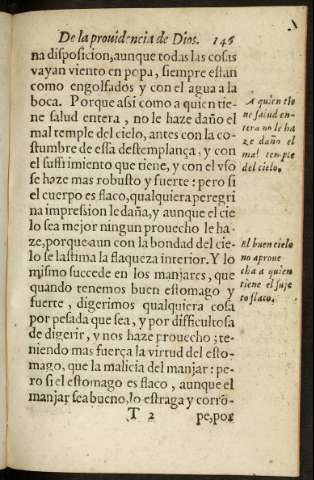 De la prouidencia de Dios. 145
na disposicion, aunque todas las cosas
vayan viento en popa, siempre estan
como engolfados y con el agua a la
boca. Porque asi como a quien tie-
ne salud entera, no le haze daño el
mal temple del cielo, antes con la co-
stumbre de essa destemplança, y con
el sufrimiento que tiene, y con el vso
se haze mas robusto y fuerte: pero si
el cuerpo es flaco, qualquiera peregri
na impresion le daña, y aunque el cie
lo sea mejor ningun prouecho le ha-
ze, porque aun con la bondad del cie-
lo se lastima la flaqueza interior. Y lo
mismo succede en los manjares, que
quando tenemos buen estomago y
fuerte, digerimos qualquiera cosa
por pesada que sea, y por dificultosa
de digerir, y nos haze prouecho; te-
niendo mas fuerça la virtud del esto-
mago, que la malicia del manjar: pe-
ro si el estomago es flaco, aunque el
manjar sea bueno, lo estraga y corrõ-
T 2 pe, por
A quien tie
ne salud en-
tera no le ha
ze daño el
mal temple
del cielo.
El buen cielo
no aproue
cha a quien
tiene el suje
to flaco.